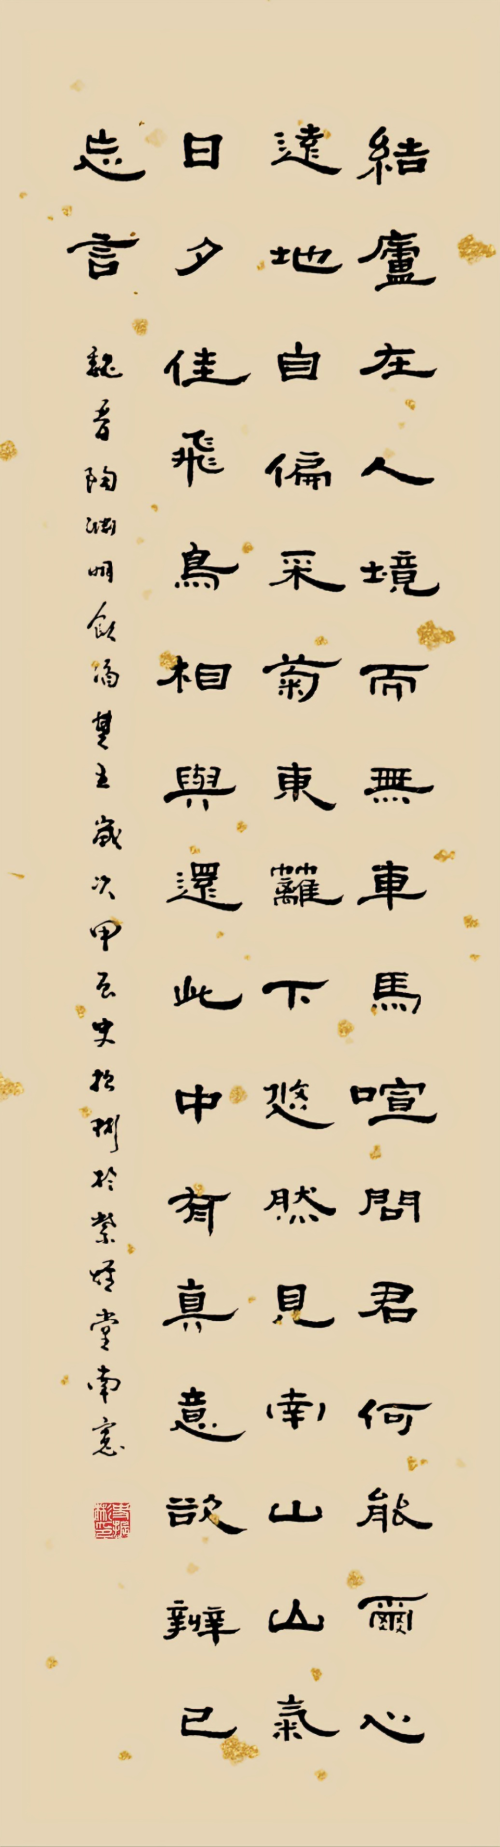 結廬在人境而無車馬喧問君何能爾心
遠地自偏采菊東籬下悠然見南山山氣
日夕佳飛鳥相與還此中有真意欲辨已
忘言
魏晉陶淵明飲酒其五歲次甲辰史振於紫堂南窗